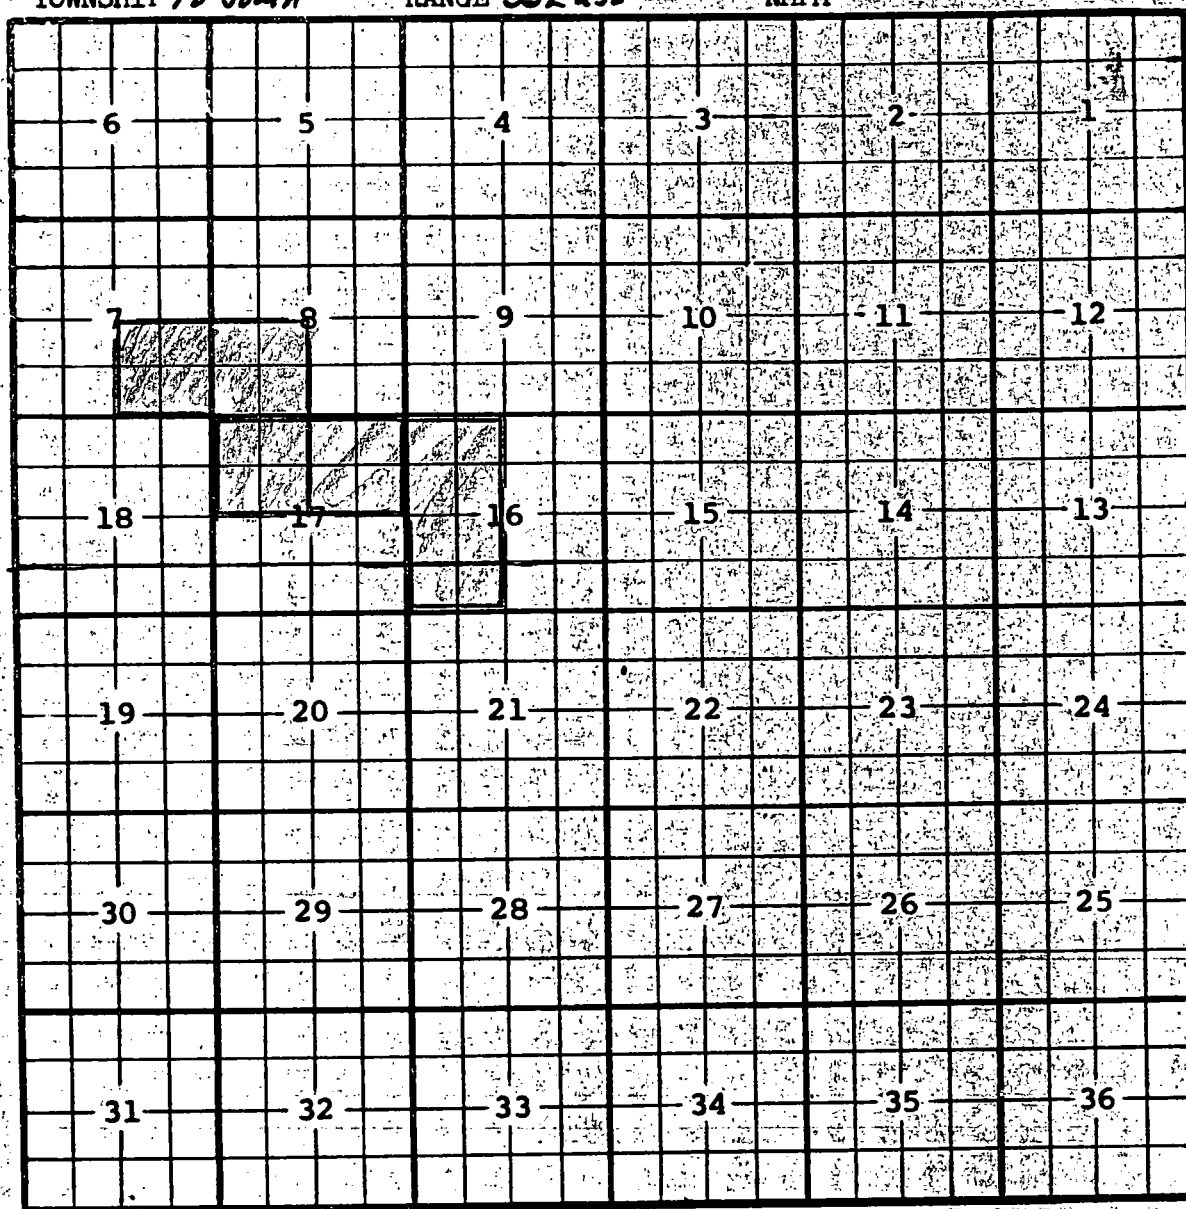 TOWNSHIP RANGE NMPM
6 5 4 3 2 1
7 8 9 10 11 12
18 17 16 15 14 13
19 20 21 22 23 24
30 29 28 27 26 25
31 32 33 34 35 36